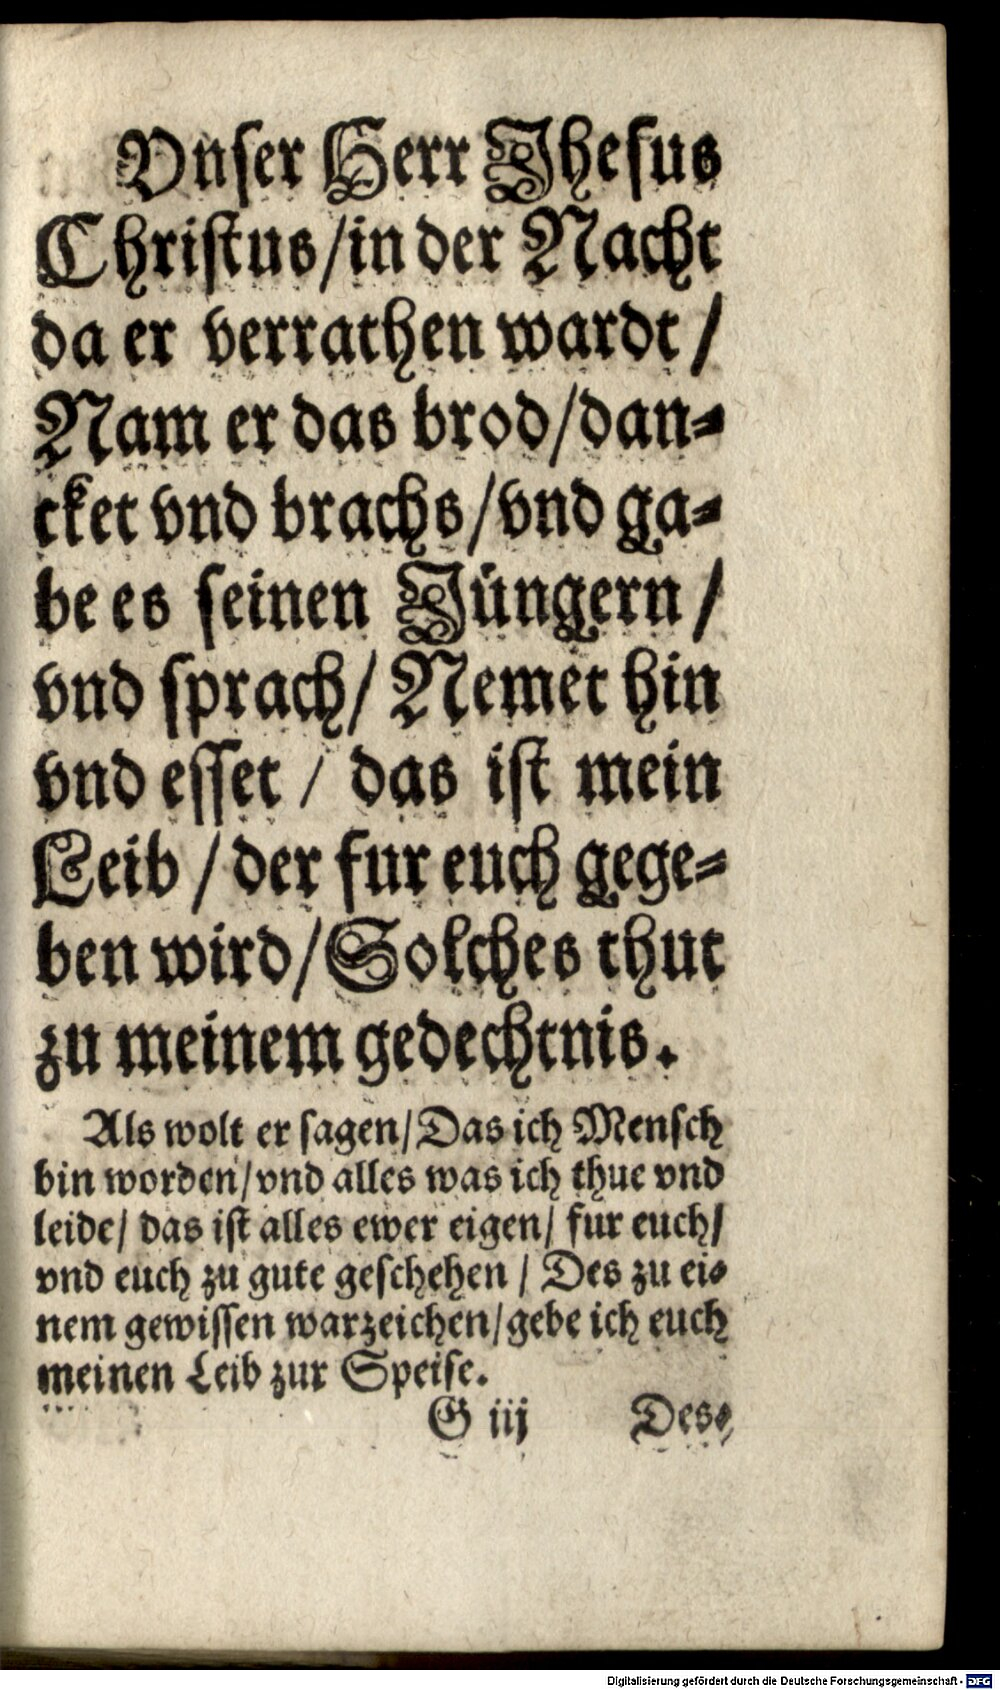 Vnser Herr Jhesus
Christus/in der Nacht
da er verrathen wardt/
Nam er das brod/dan-
cket vnd brachs/vnd ga-
be es seinen Jüngern/
vnd sprach/Nemet hin
vnd esset/das ist mein
Leib/der fur euch gege-
ben wird/Solches thut
zu meinem gedechtnis.
Als wolt er sagen/Das ich Mensch
bin worden/vnd alles was ich thue vnd
leide/das ist alles ewer eigen/fur euch/
vnd euch zu gute geschehen/Des zu ei-
nem gewissen warzeichen/gebe ich euch
meinen Leib zur Speise.
G iij Des-
Digitalisierung gefördert durch die Deutsche Forschungsgemeinschaft - DFG